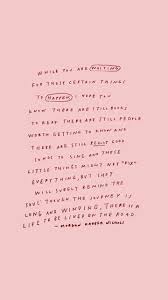 WHILE YOU ARE WAITING
FOR THOSE CERTAIN THINGS
TO HAPPEN, I HOPE YOU
KNOW THERE ARE STILL BOOKS
TO READ. THERE ARE STILL PEOPLE
WORTH GETTING TO KNOW AND
THERE ARE STILL REALLY GOOD
SONGS TO SING AND THESE
LITTLE THINGS MIGHT NOT "FIX"
EVERYTHING, BUT THEY
WILL SURELY REMIND THE
SOUL THOUGH THE JOURNEY IS
LONG AND WINDING, THERE IS A
LIFE TO BE LIVED ON THE ROAD.
- MORGAN HARPER NICHOLS